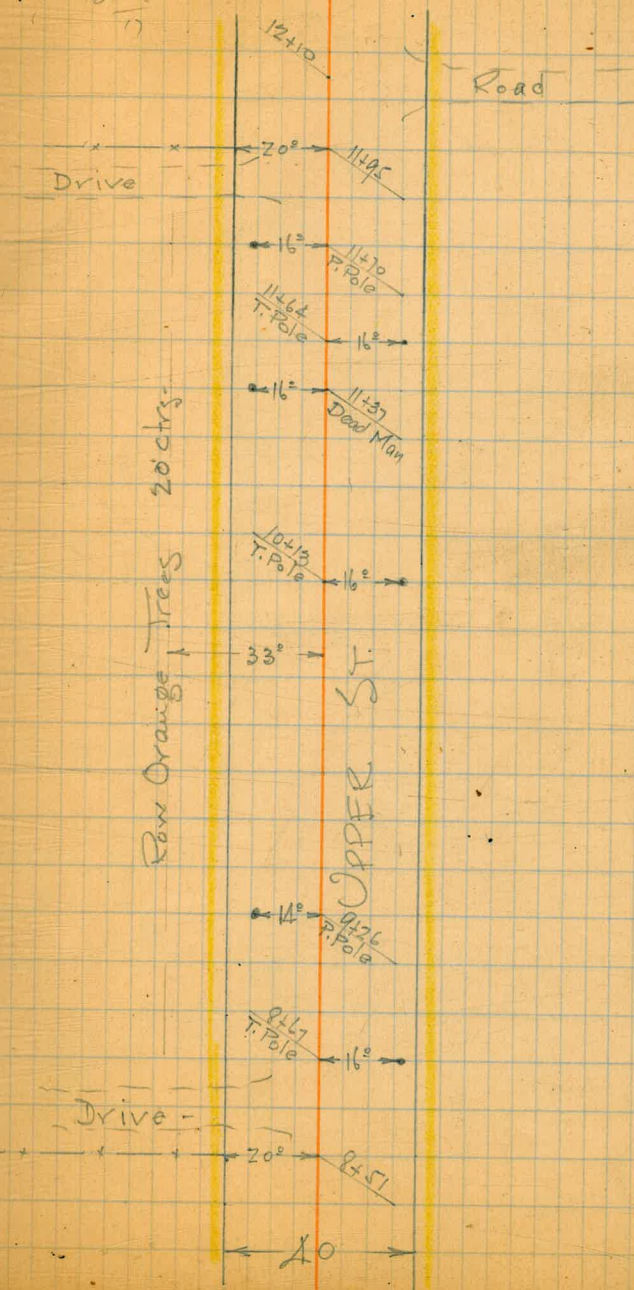 12+10
Road
20º
11+95
Drive
16º
11+70
P. Pole
11+64
T. Pole
16º
16º
11+37
Dead Man
Row Orange Trees 20' ctrs.
10+13
T. Pole
16º
33º
UPPER ST.
14º
9+26
P. Pole
8+67
T. Pole
16º
Drive -
20º
8+51
40